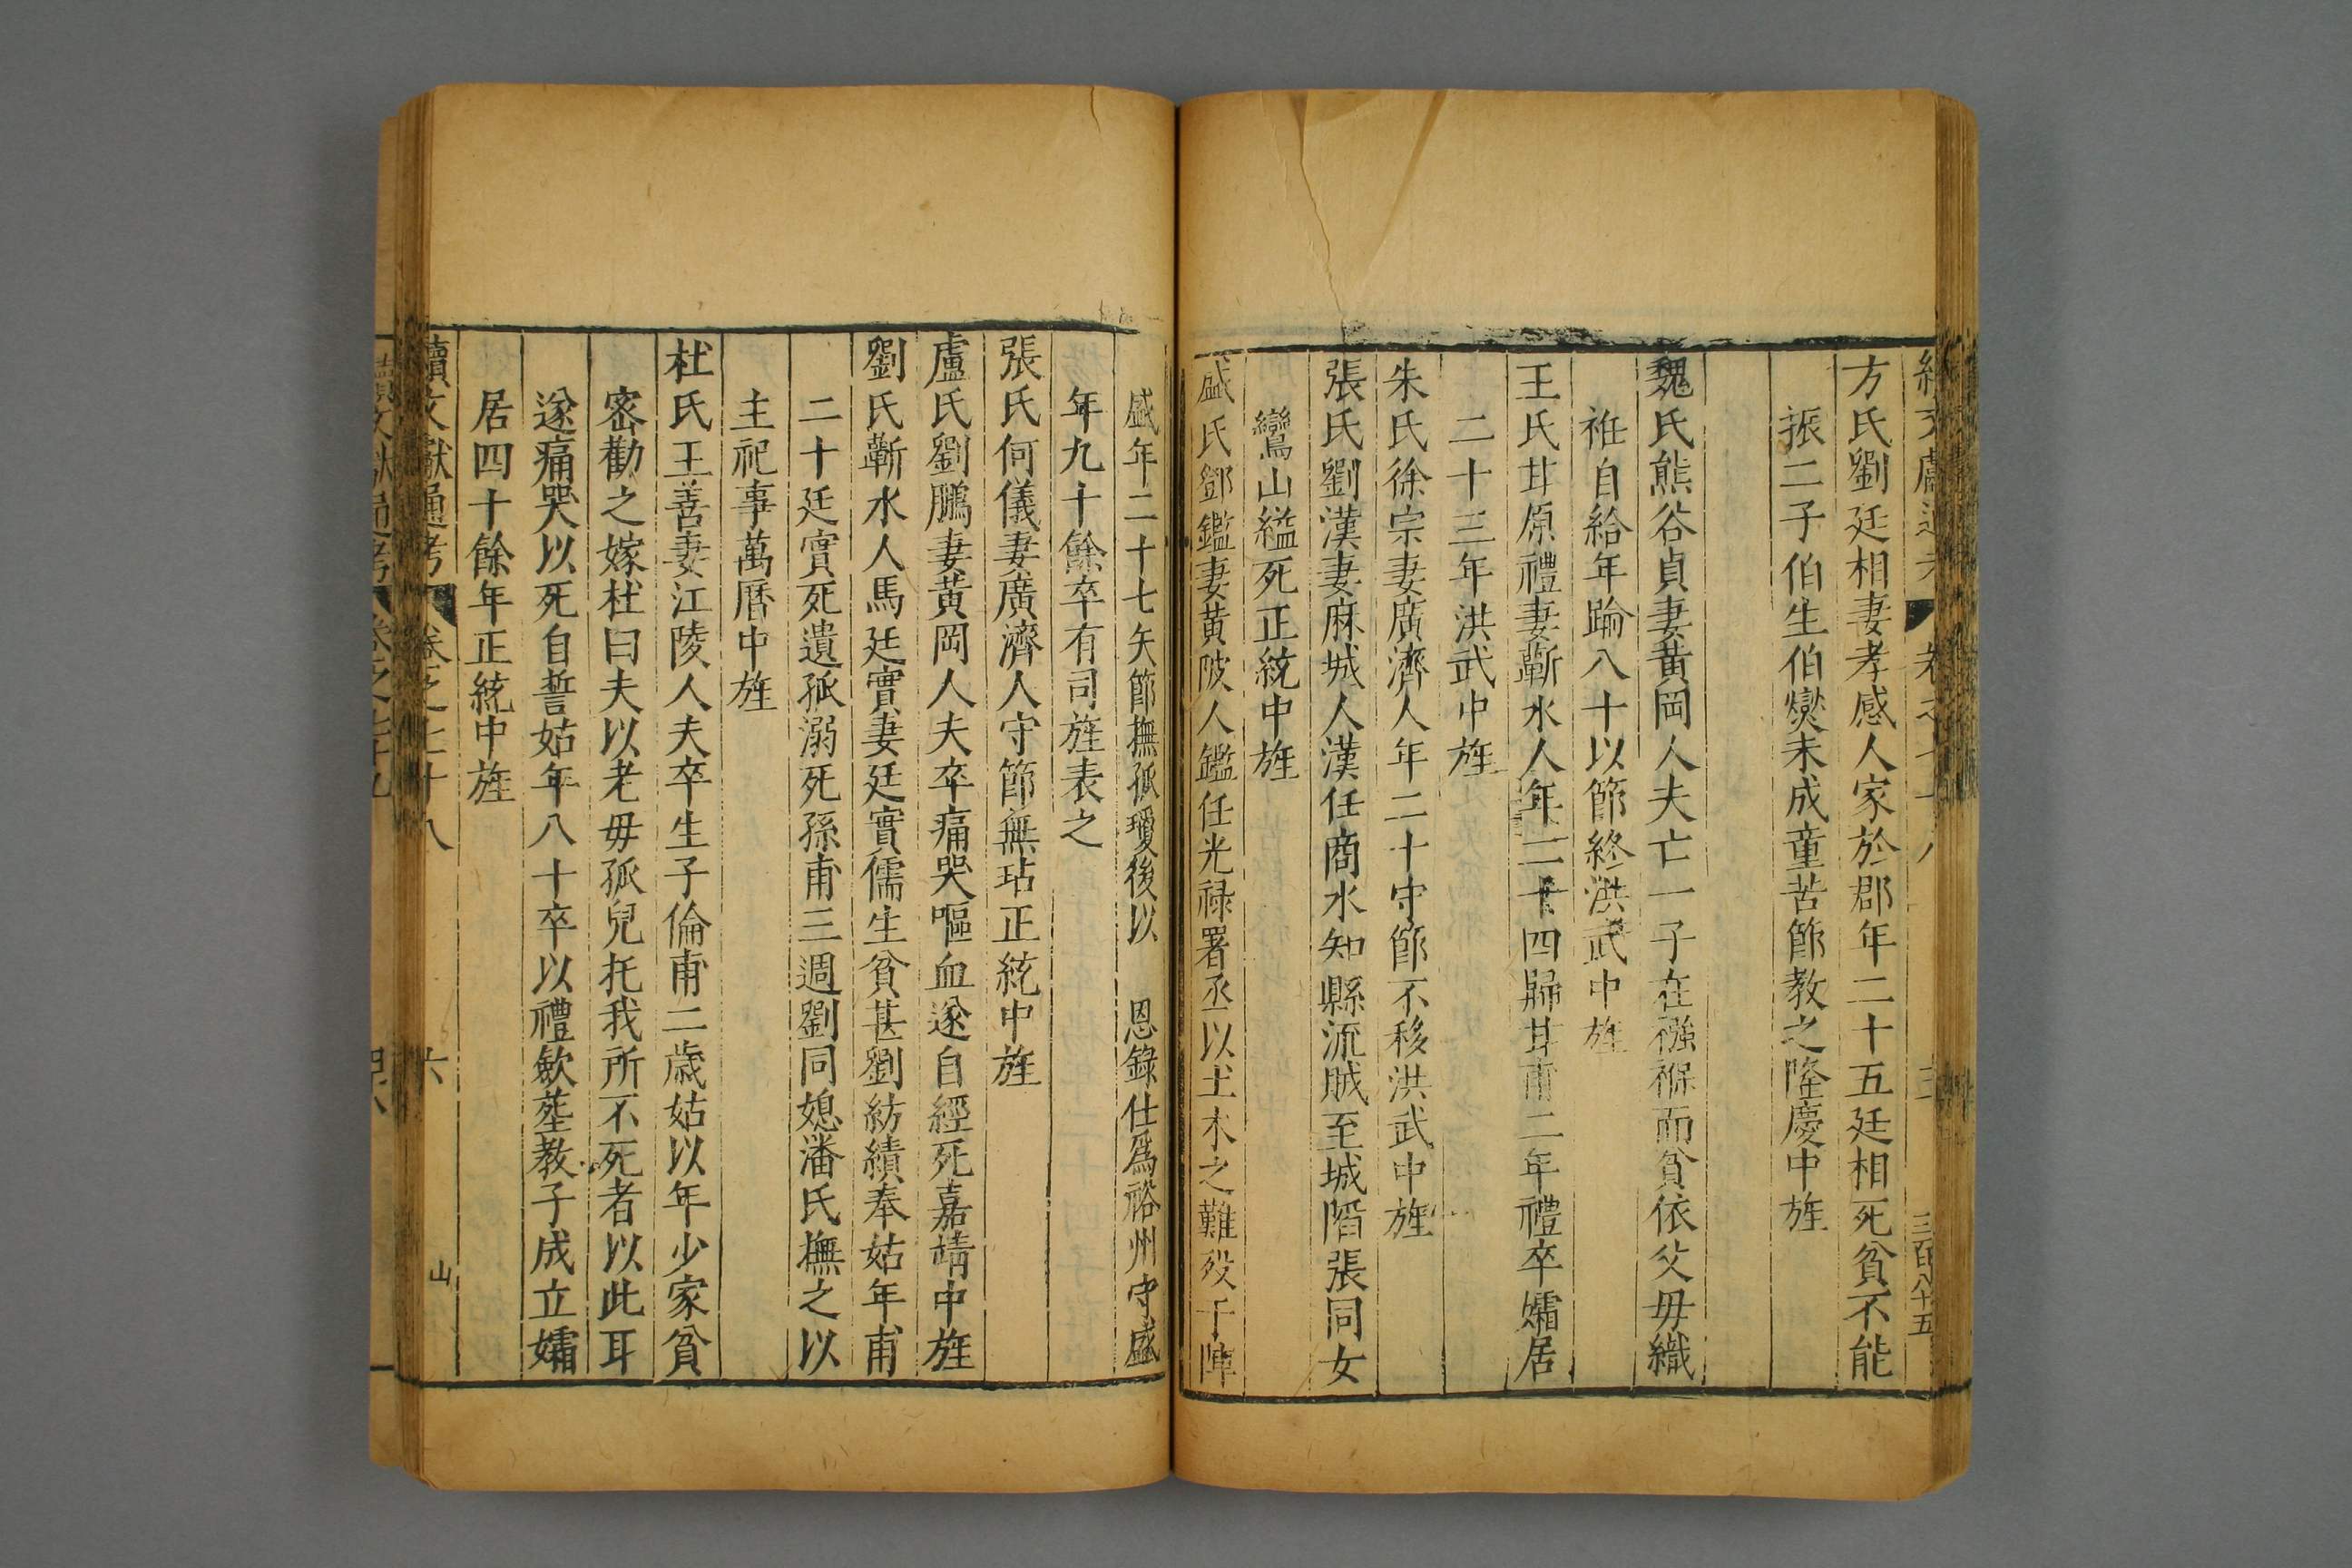 方氏劉廷相妻孝感人家於郡年二十五廷相死貧不能
振二子伯生伯爕未成童苦節教之隆慶中旌
魏氏熊谷貞妻黃岡人夫亡一子在襁褓而貧依父毋織
袵自給年踰八十以節終洪武中旌
王氏甘原禮妻蘄水人年二十四歸甘甫二年禮卒孀居
二十三年洪武中旌
朱氏徐宗妻廣濟人年二十守節不移洪武中旌
張氏劉漢妻麻城人漢任商水知縣流賊至城陷張同女
鸞山縊死正統中旌
盛氏鄧鑑妻黄陂人鑑任光禄署丞以土木之難歿于陣
盛年二十七矢節撫孤瓊後以 恩錄仕爲裕州守盛
年九十餘卒有司旌表之
張氏何儀妻廣濟人守節無玷正統中旌
盧氏劉鵬妻黃岡人夫卒痛哭嘔血遂自經死嘉靖中旌
劉氏蘄水人馬廷實妻廷實儒生貧甚劉紡績奉姑年甫
二十廷實死遺孤溺死孫甫三週劉同媳潘氏撫之以
主祀事萬曆中旌
杜氏王善妻江陵人夫卒生子倫甫二歲姑以年少家貧
密勸之嫁杜曰夫以老毋孤兒托我所不死者以此耳
遂痛哭以死自誓姑年八十卒以禮歛塟教子成立孀
居四十餘年正統中旌
續文獻通考 卷之七十八 六 山